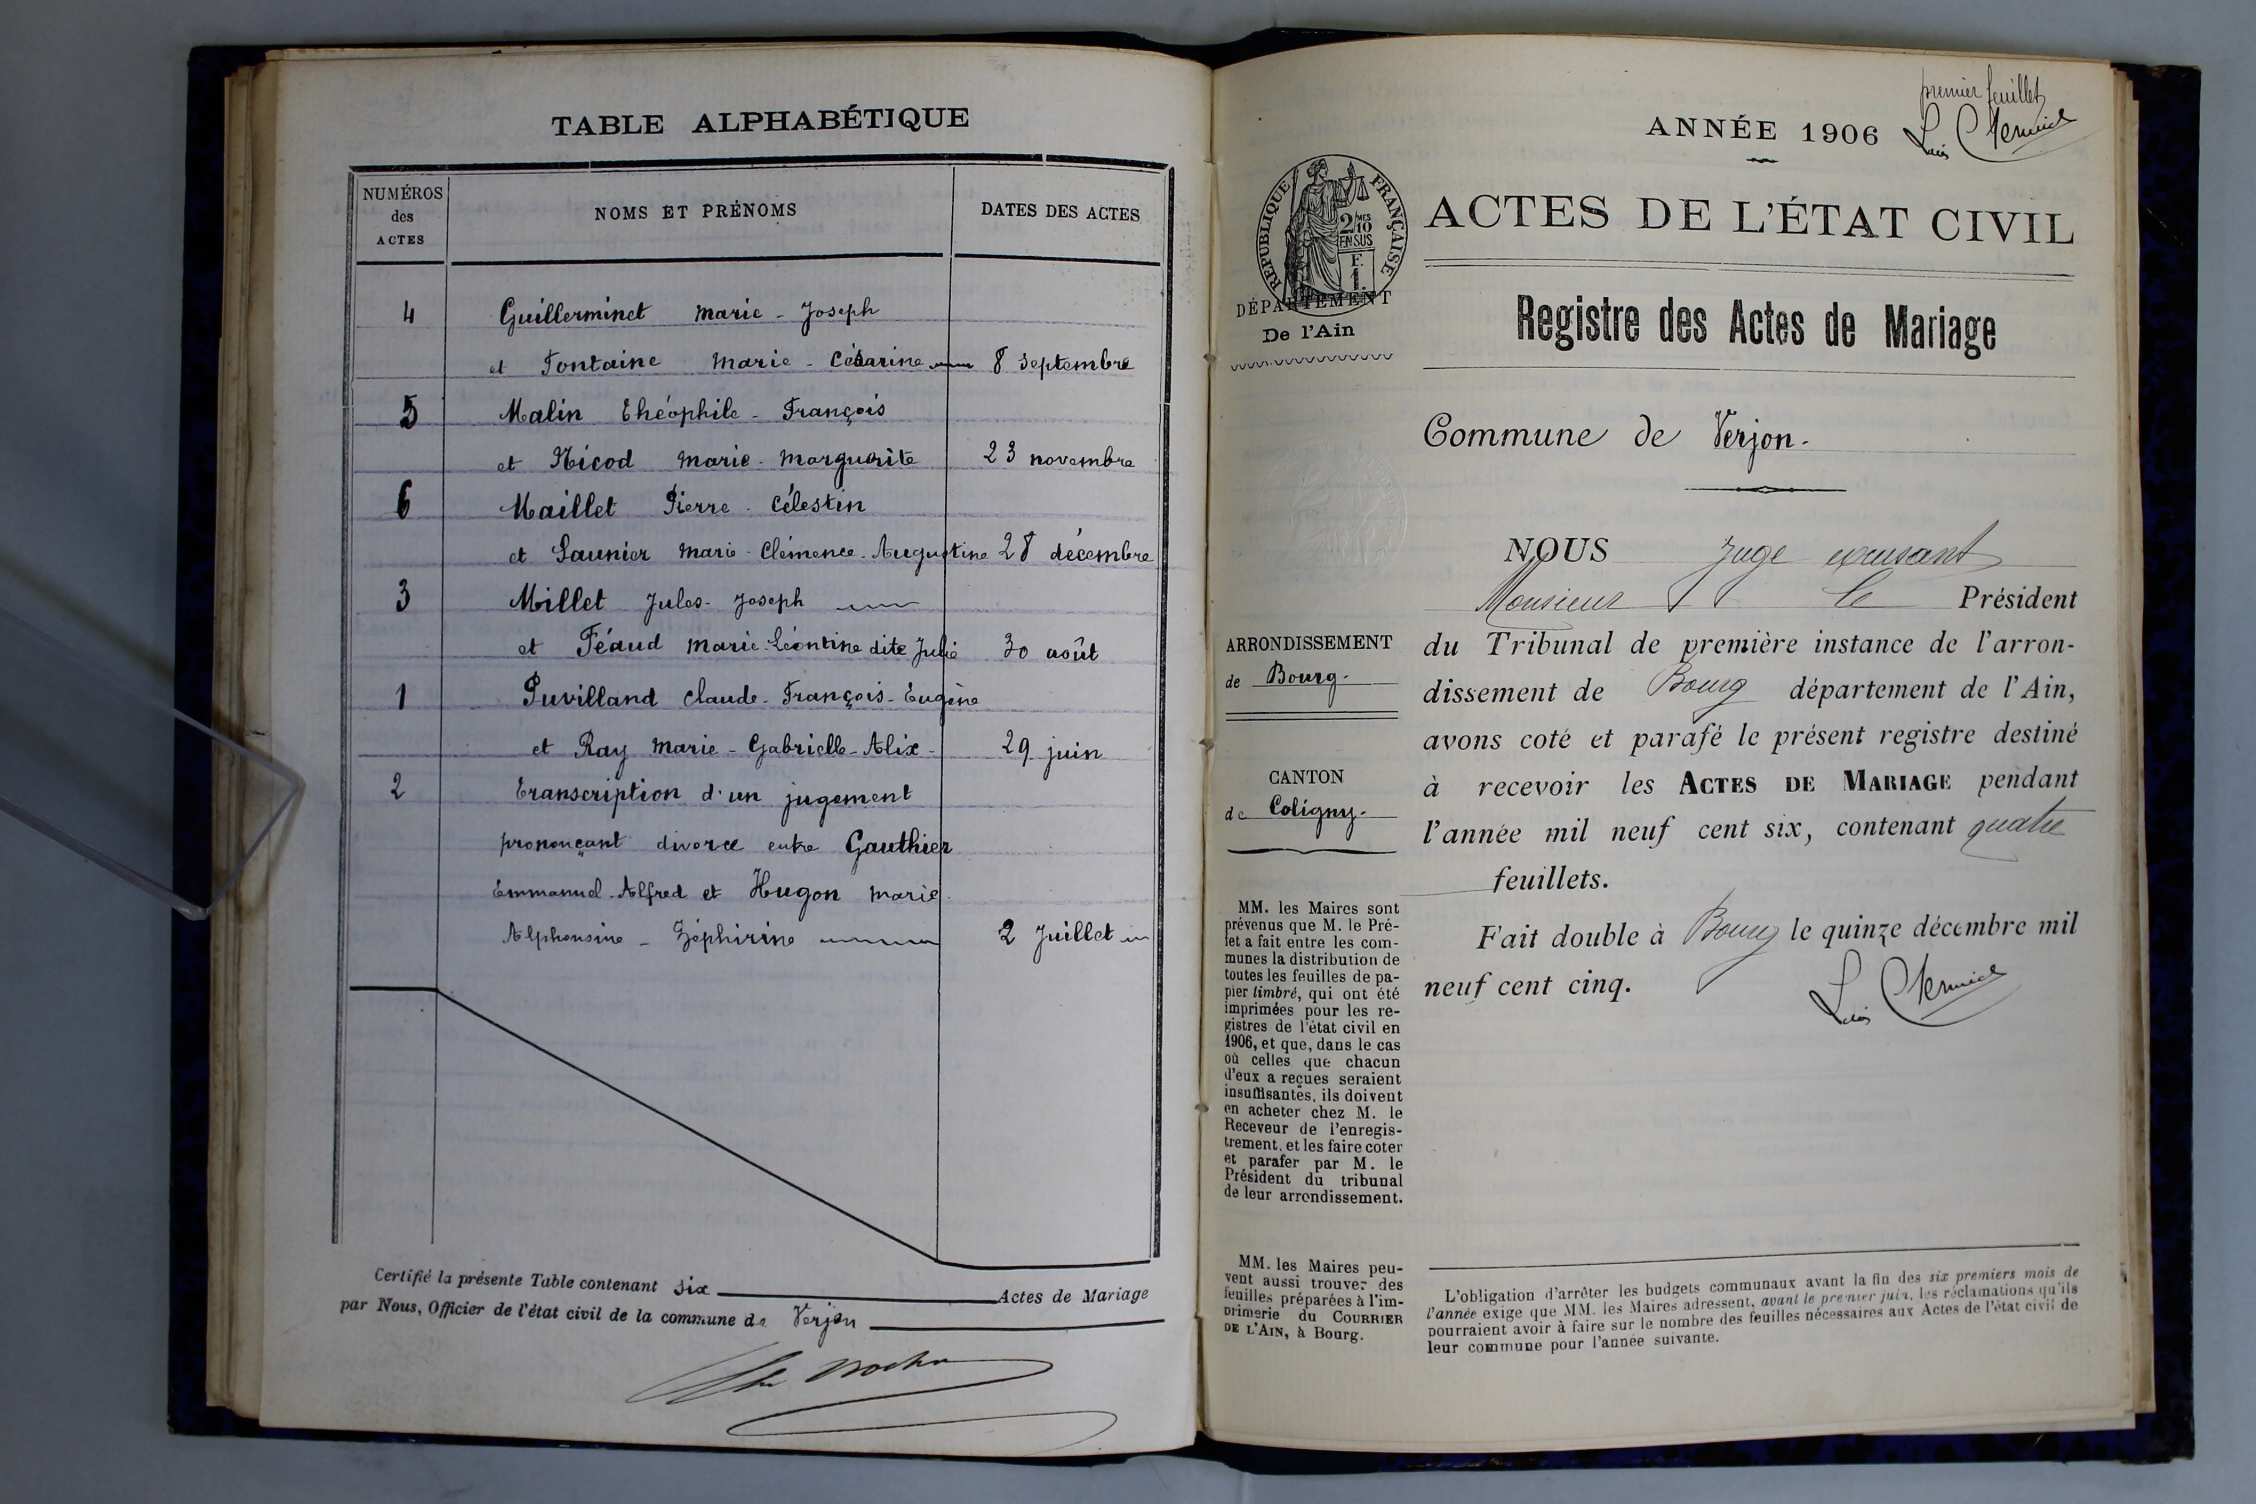 TABLE ALPHABÉTIQUE
NUMÉROS
des
ACTES
NOMS ET PRÉNOMS
DATES DES ACTES
4 Guillerminet Marie - Joseph
et Fontaine Marie - Césarine 8 septembre
5 Malin Théophile - François
et Nicod Marie - Marguerite 23 novembre
6 Maillet Pierre - Célestin
et Saunier Marie - Clémence - Augustine 28 décembre
3 Millet Jules - Joseph
et Féaud Marie - Léontine dite Julie 30 août
1 Puvilland Claude - François - Eugène
et Ray Marie - Gabrielle - Alix - 29 juin
2 Transcription d'un jugement
prononçant divorce entre Gauthier
Emmanuel - Alfred et Hugon Marie
Alphonsine - Zéphirine 2 Juillet
Certifié la présente Table contenant six Actes de Mariage
par Nous, Officier de l'état civil de la commune de Verjon
premier feuillet
ANNÉE 1906
RÉPUBLIQUE FRANÇAISE
2/10 MES
EN SUS
F.
1.
ACTES DE L'ÉTAT CIVIL
DÉPARTEMENT
De l'Ain
Registre des Actes de Mariage
Commune de Verjon.
NOUS Juge
Monsieur le Président
du Tribunal de première instance de l'arron-
dissement de Bourg département de l'Ain,
avons coté et parafé le présent registre destiné
à recevoir les ACTES DE MARIAGE pendant
l'année mil neuf cent six, contenant quatre
feuillets.
Fait double à Bourg le quinze décembre mil
neuf cent cinq.
ARRONDISSEMENT
de Bourg.
CANTON
de Coligny.
MM. les Maires sont
prévenus que M. le Pré-
fet a fait entre les com-
munes la distribution de
toutes les feuilles de pa-
pier timbré, qui ont été
imprimées pour les re-
gistres de l'état civil en
1906, et que, dans le cas
où celles que chacun
d'eux a reçues seraient
insuffisantes, ils doivent
en acheter chez M. le
Receveur de l'enregis-
trement, et les faire coter
et parafer par M. le
Président du tribunal
de leur arrondissement.
MM. les Maires peu-
vent aussi trouver des
feuilles préparées à l'im-
primerie du COURRIER
DE L'AIN, à Bourg.
L'obligation d'arrêter les budgets communaux avant la fin des six premiers mois de
l'année exige que MM. les Maires adressent, avant le premier juin, les réclamations qu'ils
pourraient avoir à faire sur le nombre des feuilles nécessaires aux Actes de l'état civil de
leur commune pour l'année suivante.